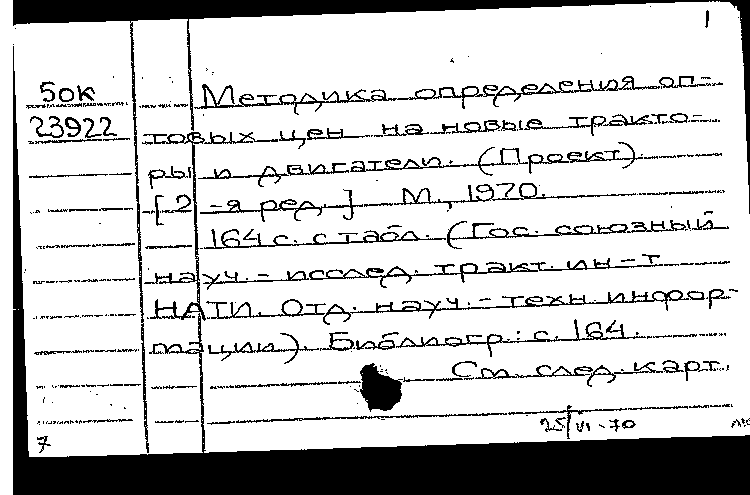 1
50к
23922
Методика определения оп-
товых цен на новые тракто-
ры и двигатели. (Проект).
[2-я ред.] М., 1970.
164 с. с табл. (Гос. союзный
науч.-исслед. тракт. ин-т
НАТИ. Отд. науч.-техн. инфор-
мации). Библиогр.: с. 164.
См. след. карт.
25/VI-70
7